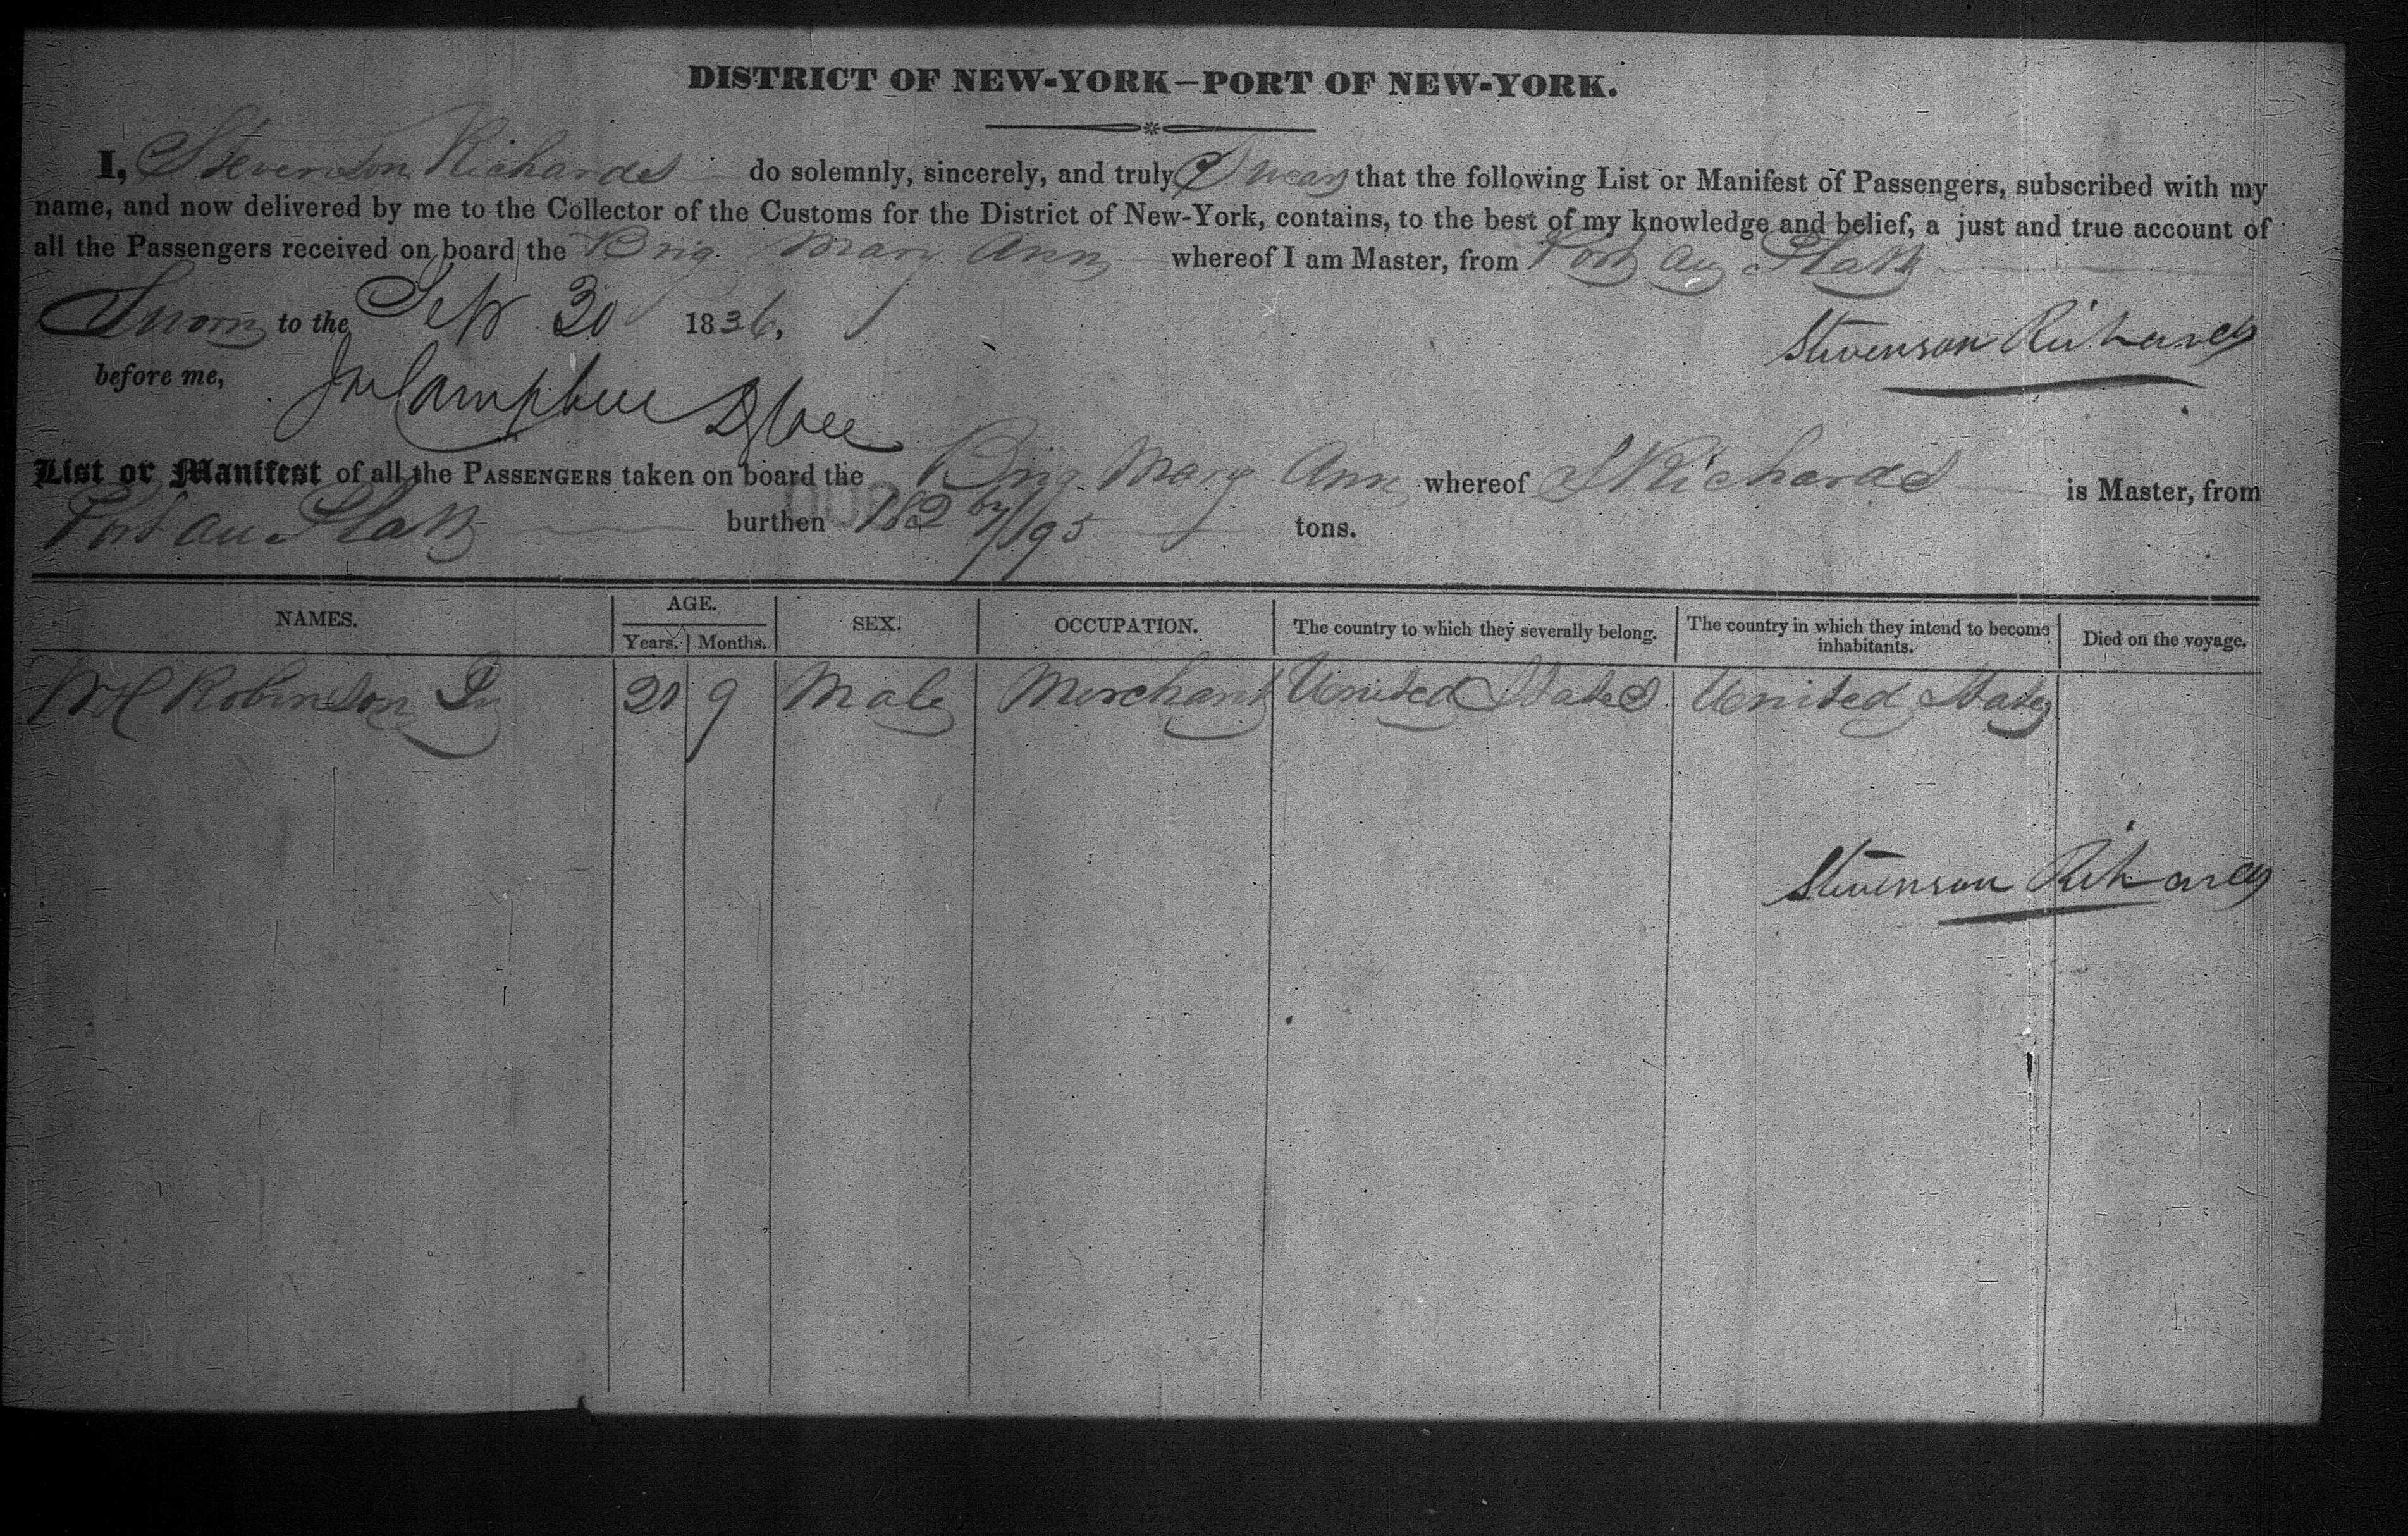 DISTRICT OF NEW-YORK—PORT OF NEW-YORK.
I, Stevenson Richards do solemnly, sincerely, and truly Swear that the following List or Manifest of Passengers, subscribed with my
name, and now delivered by me to the Collector of the Customs for the District of New-York, contains, to the best of my knowledge and belief, a just and true account of
all the Passengers received on board the Brig Mary Ann whereof I am Master, from Port au Platt
Sworn to the Sept 30 1836,
Stevenson Richards
before me,
Campbell
List or Manifest of all the PASSENGERS taken on board the Brig Mary Ann whereof S Richards is Master, from
Port au Platt burthen 182 /95 tons.
NAMES. AGE. Years. Months. SEX. OCCUPATION. The country to which they severally belong. The country in which they intend to become inhabitants. Died on the voyage.
Robinson 9 Male Merchant United States United States
Stevenson Richards